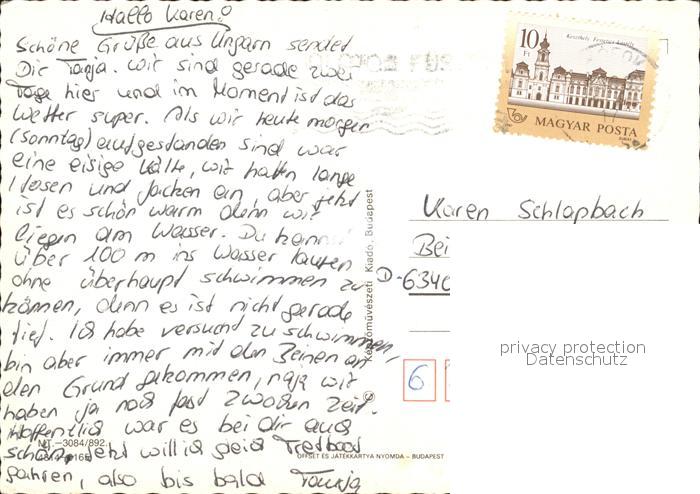 Hallo Karen!
Schöne Grüße aus Ungarn sendet
Dir Tanja. Wir sind gerade zwei
Tage hier und im Moment ist das
Wetter super. Als wir heute morgen
(Sonntag) aufgestanden sind war
eine eisige Kälte, wir hatten lange
Hosen und Jacken an, aber jetzt
ist es schön warm denn wir
liegen am Wasser. Du kannst
über 100 m ins Wasser laufen
ohne überhaupt schwimmen zu
können, denn es ist nicht gerade
tief. Ich habe versucht zu schwimmen,
bin aber immer mit den Beinen an
den Grund gekommen, naja wir
haben ja noch fast 2 Wochen Zeit.
Hoffentlich war es bei dir auch
schön, jetzt will ich gleich Tretboot
fahren, also bis bald Tanja
MT.-3084/892.
OFFSET ÉS JÁTÉKKÁRTYA NYOMDA – BUDAPEST
© Képzőművészeti Kiadó, Budapest
10 Ft
Keszthely, Festetics kastély
MAGYAR POSTA
Karen Schlapbach
Bei
D-6340
6
privacy protection
Datenschutz